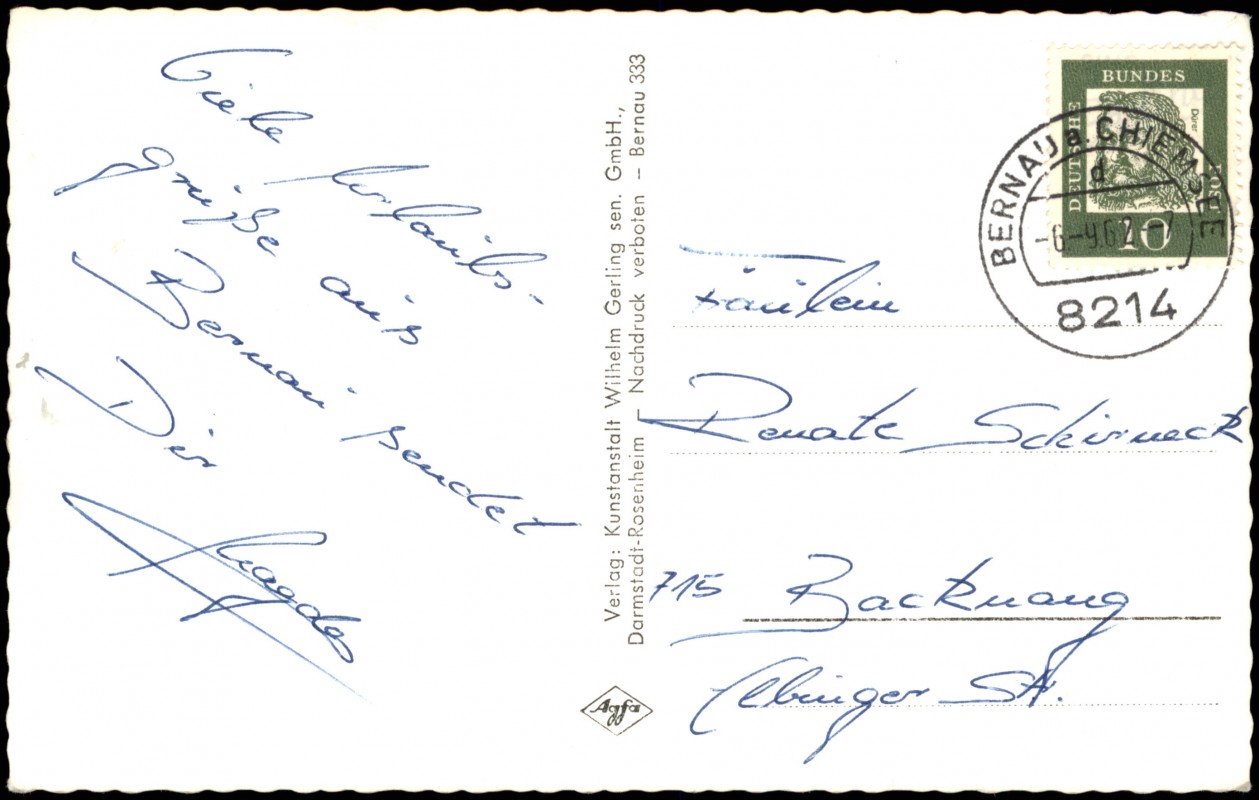 Viele Urlaubs-
grüße aus
Bernau sendet
Dir
Magda
Verlag: Kunstanstalt Wilhelm Gerling sen. GmbH.,
Darmstadt-Rosenheim – Nachdruck verboten – Bernau 333
Agfa
DEUTSCHE
BUNDES
POST
Dürer
10
BERNAU a. CHIEMSEE
d
-6.-9.62-7
8214
Fräulein
Renate Schirneck
715 Backnang
Elbinger St.